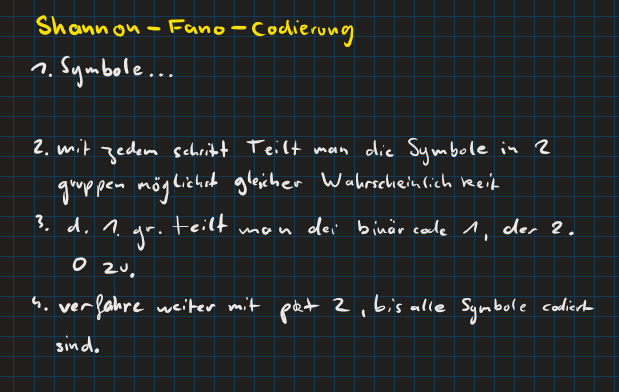 Shannon-Fano-Codierung
1. Symbole...
2. mit jedem schritt Teilt man die Symbole in 2
gruppen möglichst gleicher Wahrscheinlichkeit
3. d. 1. gr. teilt man dei binär code 1, der 2.
0 zu.
4. verfahre weiter mit pkt 2, bis alle Symbole codiert
sind.